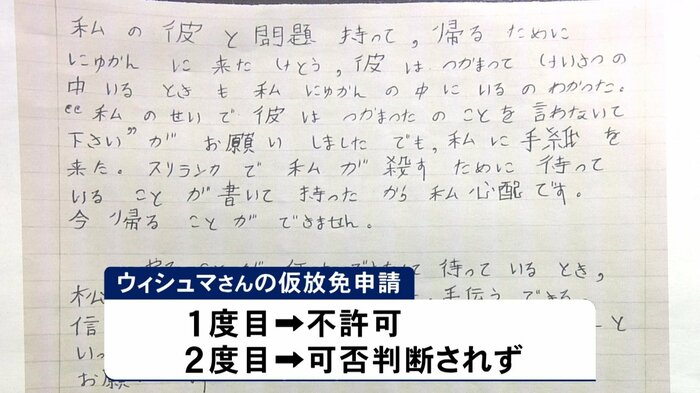 私 の 彼 と 問題 持って, 帰る ために
にゅかん に 来た けとう, 彼 は つかまって けいさつの
中 いる ときも 私 にゅかん の 中 に いる の わかった。
“私 の せい で 彼 は つかまった の ことを 言わないて
下さい” が お願い しました でも, 私 に 手紙 を
来た。スリランク で 私 が 殺す ために 待って
いる こと が 書いて 持った から 私 心配 です。
今 帰る こと が できません。
待って いる とき,
手伝う できる
信
と
いっ
お願い
ウィシュマさんの仮放免申請
1度目➡不許可
2度目➡可否判断されず